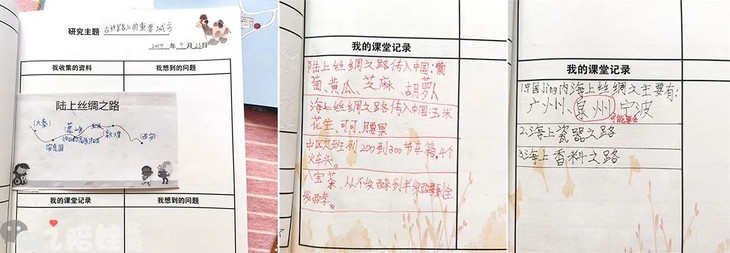 研究主题 古丝绸之路上的重要城市
2019年9月23日
我收集的资料
我想到的问题
陆上丝绸之路
(大秦)
安息国
敦煌
西安
我的课堂记录
我想到的问题
我的课堂记录
陆上丝绸之路传入中国:葡
萄、黄瓜、芝麻、胡萝卜
海上丝绸之路传入中国:玉米
花生、可可、腰果
中欧班列 200到300节车箱,4个
火车头。
八宝茶,从不发酵到半发酵到全
发酵。
我的课堂记录
1.中国jing内海上丝绸之主要有:
广州、泉州、宁波
可能要去
2.海上瓷器之路
3.海上香料之路